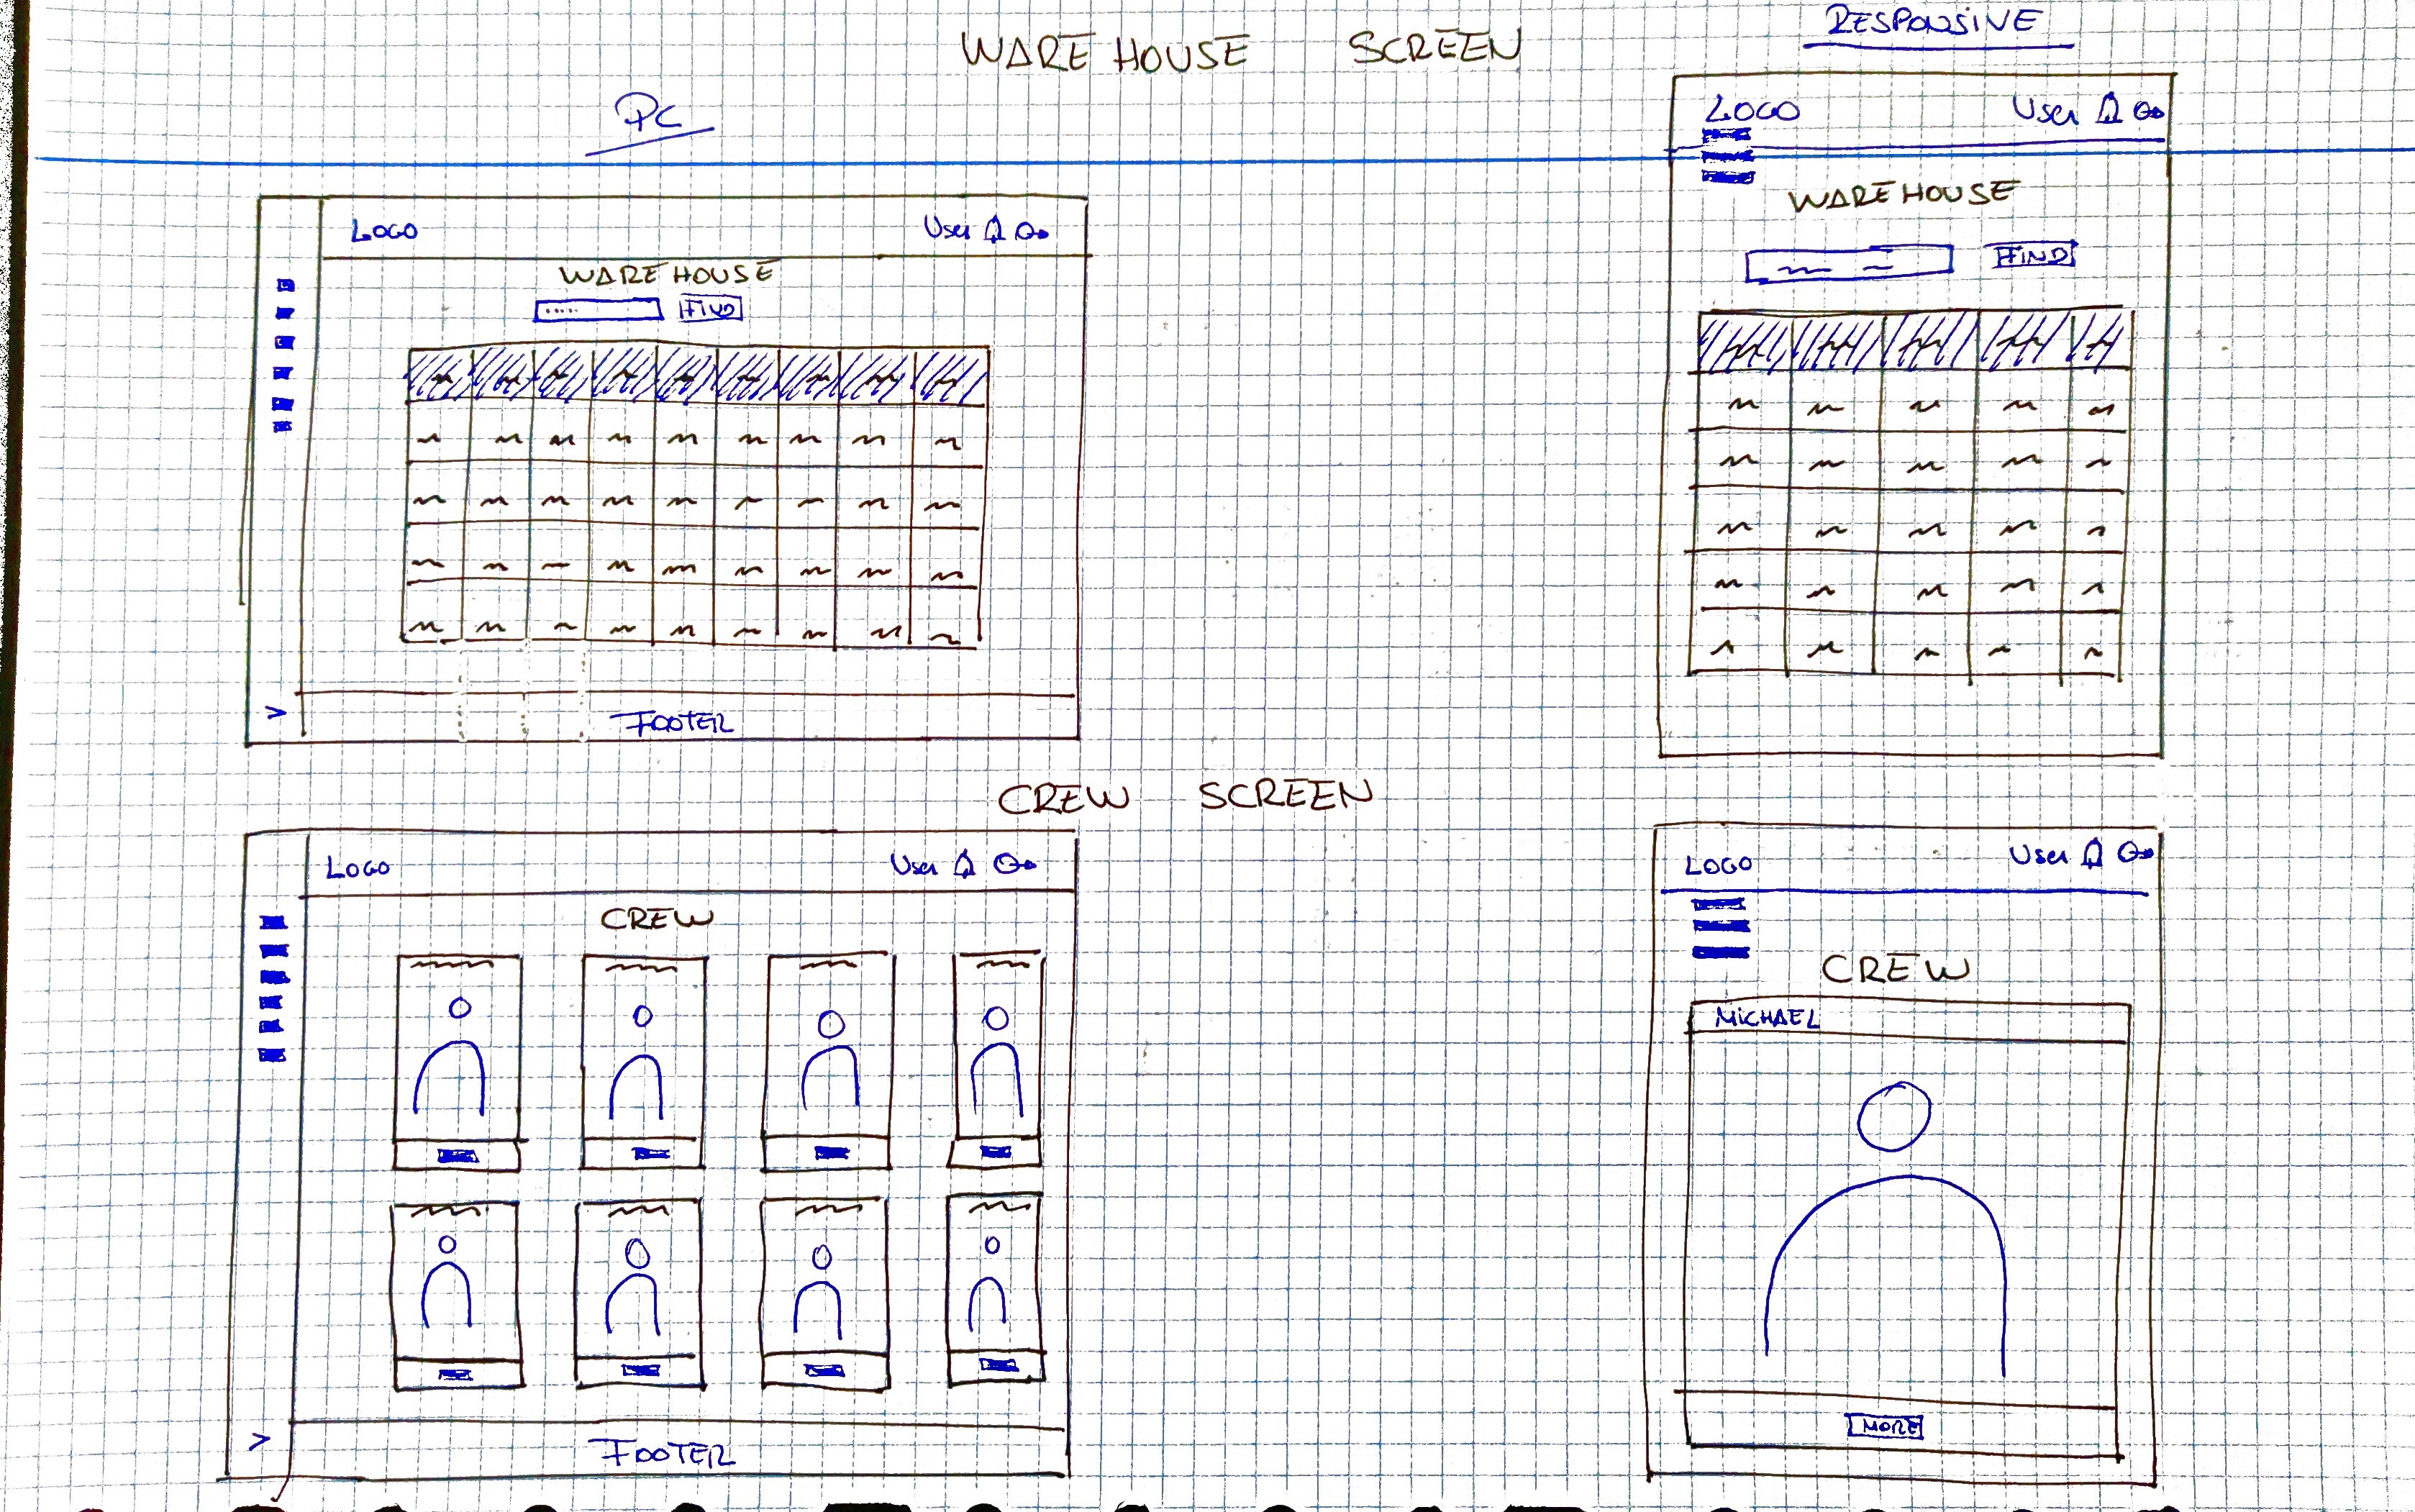 WAREHOUSE SCREEN
RESPONSIVE
PC
LOGO User
WAREHOUSE
FIND
FOOTER
LOGO User
WAREHOUSE
FIND
CREW SCREEN
LOGO User
CREW
FOOTER
LOGO User
CREW
MICHAEL
MORE